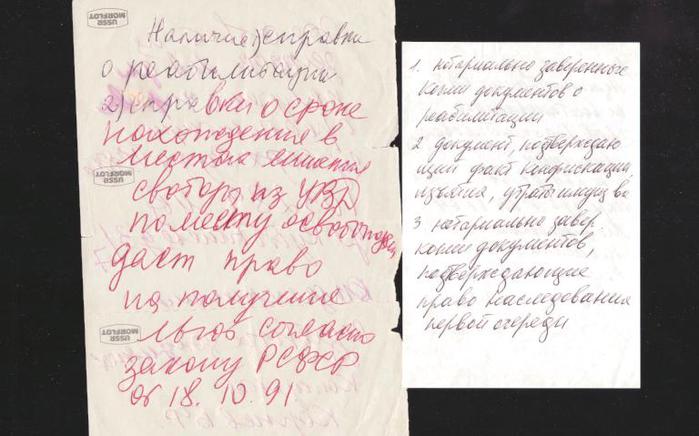 USSR
MORFLOT
Наличие 1) справки
о реабилитации
2) справки о сроке
нахождения в
местах лишения
свободы из УВД
по месту освобождения
даст право
на получение
льгот согласно
закону РСФСР
от 18.10.91
USSR
MORFLOT
USSR
MORFLOT
1. нотариально заверенные
копии документов о
реабилитации
2 документ, подтверждаю
щий факт конфискации,
изъятия, утраты имущ ва
3 нотариально завер.
копии документов,
подтверждающие
право наследования
первой очереди